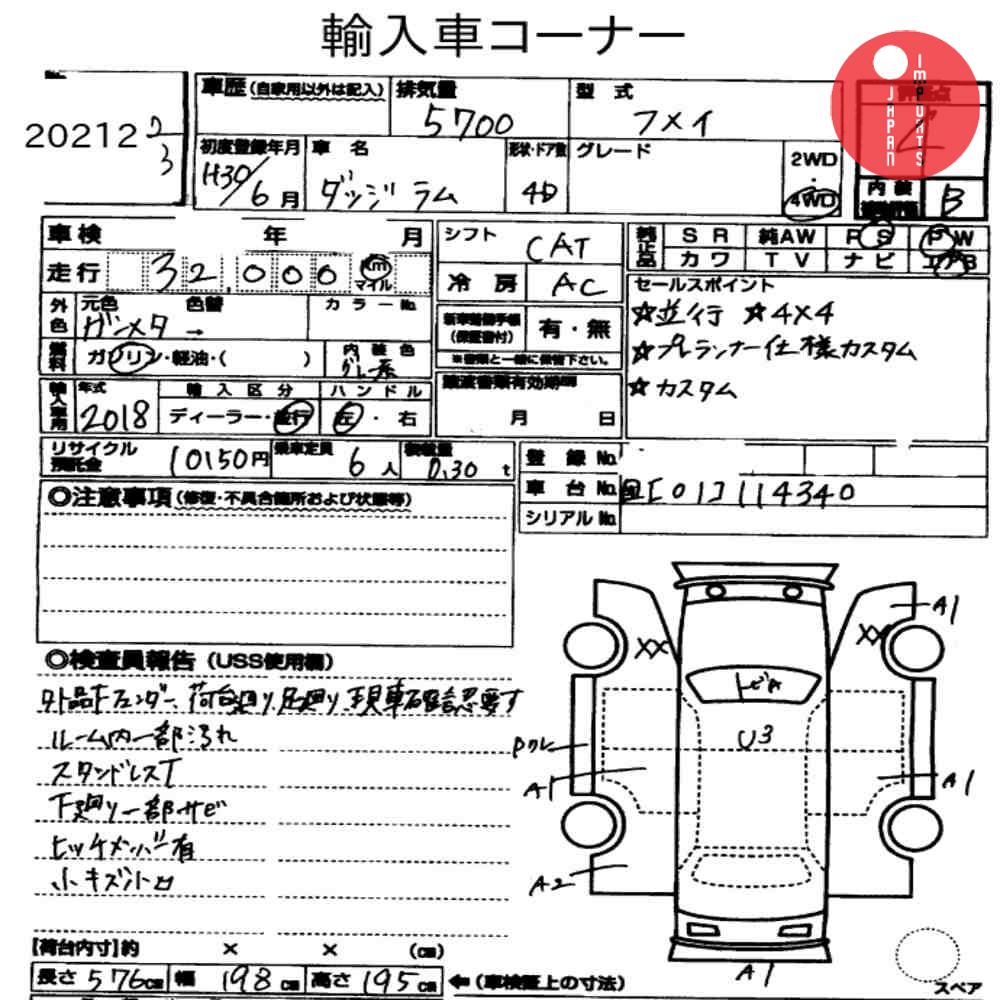 輸入車コーナー
20212
2/3
車歴 (自家用以外は記入) 排気量 型式
5700 フメイ
初度登録年月 車名 形状・ドア数 グレード 2WD・4WD
H30/6月 ダッジ ラム 4D
内装 B
車検 年 月 シフト CAT
純正品 SR 純AW PS PW
カワ TV ナビ エアB
走行 32,000 km マイル 冷房 AC
外色 元色 色替 カラーNo.
ガンメタ →
セールスポイント
☆並行 ☆4×4
☆プレランナー仕様カスタム
☆カスタム
(保証書付) 有・無
※書類と一緒に保管下さい。
燃料 ガソリン・軽油・( ) 内装色 グレー系
輸入車用 年式 輸入区分 ハンドル
2018 ディーラー・並行 左・右
譲渡書類有効期限
月 日
リサイクル預託金 10150円 乗車定員 6人 積載量 0.30t
登録No.
車台No. 国[01]114340
シリアルNo.
◎注意事項 (修復・不具合箇所および状態等)
◎検査員報告 (USS使用欄)
外品Fフェンダー、荷台廻り足廻り現車確認要す
ルーム内一部汚れ
スタンドレスT
下廻り一部サビ
ヒッチメンバー有
小キズ凹
A1
XX
XX
トビA
U3
Pワレ
A1
A1
A2
A1
スペア
【荷台内寸】約 × × (cm)
長さ 576cm 幅 198cm 高さ 195cm ←(車検証上の寸法)
IMPORTS
JAPAN